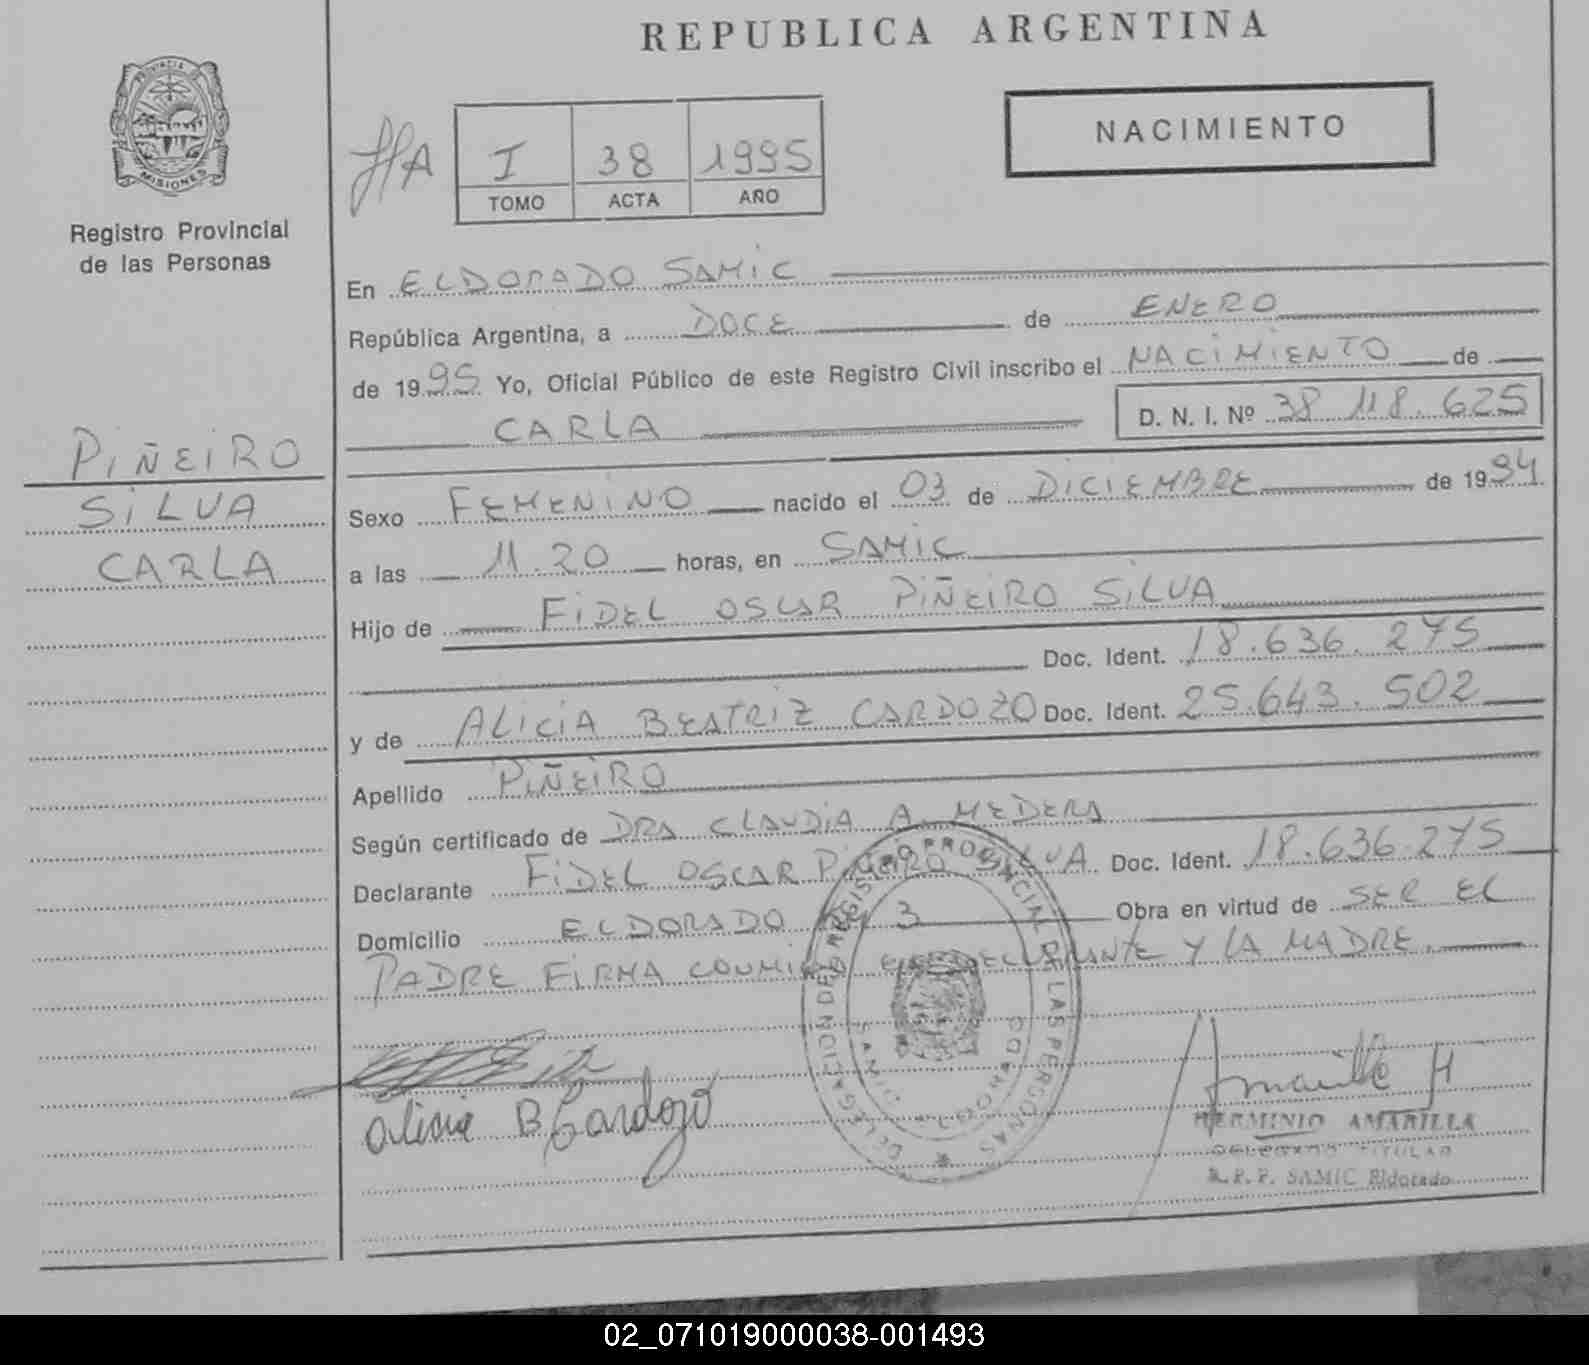 REPUBLICA ARGENTINA
PROVINCIA DE
MISIONES
Registro Provincial
de las Personas
NACIMIENTO
I 38 1995
TOMO ACTA AÑO
En ELDORADO SAMIC
República Argentina, a DOCE de ENERO
de 1995 Yo, Oficial Público de este Registro Civil inscribo el NACIMIENTO de
CARLA D. N. I. Nº 38 118.625
PIÑEIRO
SILVA
CARLA
Sexo FEMENINO nacido el 03 de DICIEMBRE de 1994
a las 11.20 horas, en SAMIC
Hijo de FIDEL OSCAR PIÑEIRO SILVA
Doc. Ident. 18.636.275
y de ALICIA BEATRIZ CARDOZO Doc. Ident. 25.643.502
Apellido PIÑEIRO
Según certificado de DRA CLAUDIA A. MEDERA
Declarante FIDEL OSCAR PIÑEIRO SILVA Doc. Ident. 18.636.275
Domicilio ELDORADO 3 Obra en virtud de SER EL
PADRE FIRMA CONMIGO EL DECLARANTE Y LA MADRE.
Alicia B Cardozo
REGISTRO PROVINCIAL DE LAS PERSONAS
HERMINIO AMARILLA
DELEGADO TITULAR
R.P.P. SAMIC Eldorado
02_071019000038-001493